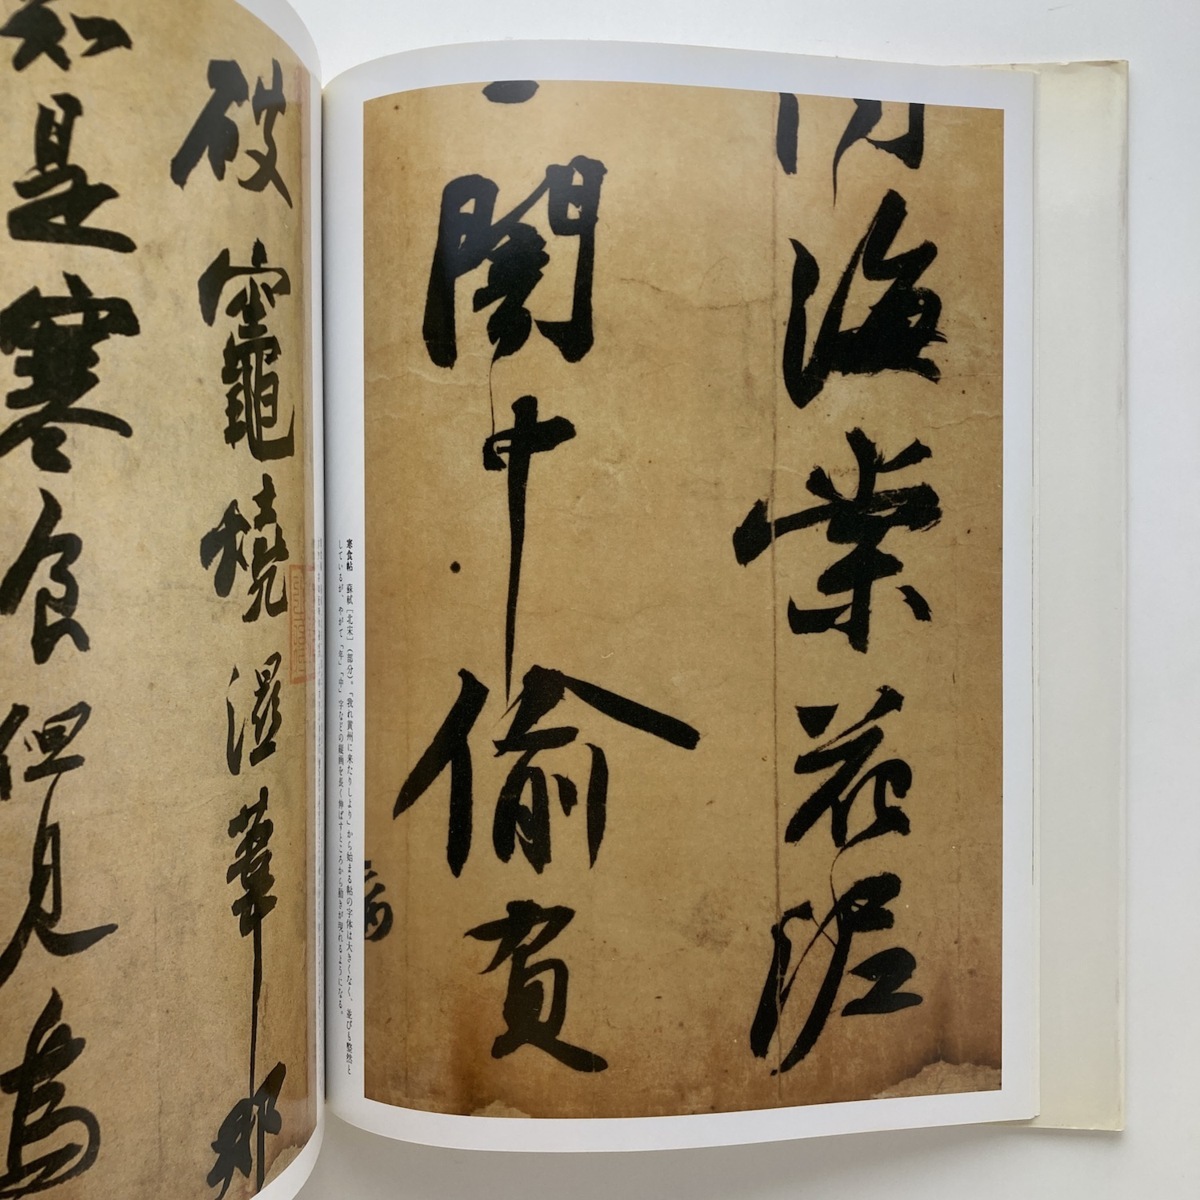 聞海棠花泥
闇中偸負
寒食帖 蘇軾[北宋](部分)。「我れ黄州に来たりしより」から始まる帖の字体は大きくなく、並びも整然と
しているが、やがて「年」「中」字などの縦画を長く伸ばすところから動きが現れるようになる。
破竈燒濕葦那
知是寒食但見烏